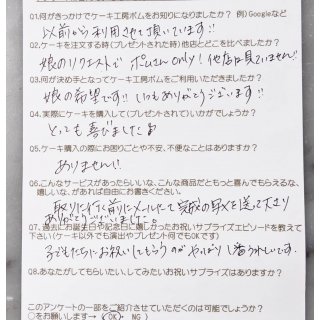 01.何がきっかけでケーキ工房ボムをお知りになりましたか? 例)Googleなど
以前から利用させて頂いています!!
02.ケーキを注文する時(プレゼントされた時)他店とどこを比べましたか?
娘のリクエストで ボムさん only! 他店は見ていません!!
03.何が決め手となってケーキ工房ボムをご利用いただきましたか?
娘の希望です!! いつもありがとうございます!!
04.実際にケーキを購入して(プレゼントされて)いかがでしょうか?
とっても喜びました
05.ケーキ購入の際にお困りごとや不安、不便なことはありますか?
ありません!!
06.こんなサービスがあったらいいな、こんな商品だともっと喜んでもらえるな、
嬉しいな、があれば自由にお書きください。
取りに行く前にメールにて
ありがとうございました。
07.過去にお誕生日や記念日に嬉しかったお祝いサプライズエピソードを教えて
下さい(ケーキ以外でも演出やプレゼント何でもOKです)
子どもたちにお祝いしてもらうのが やっぱり 1番うれしいです。
08.あなたがしてもらいたい、してみたいお祝いサプライズはありますか?
このアンケートの一部をご紹介させていただくのは可能でしょうか?
○をお願いします→ (OK・ NG )